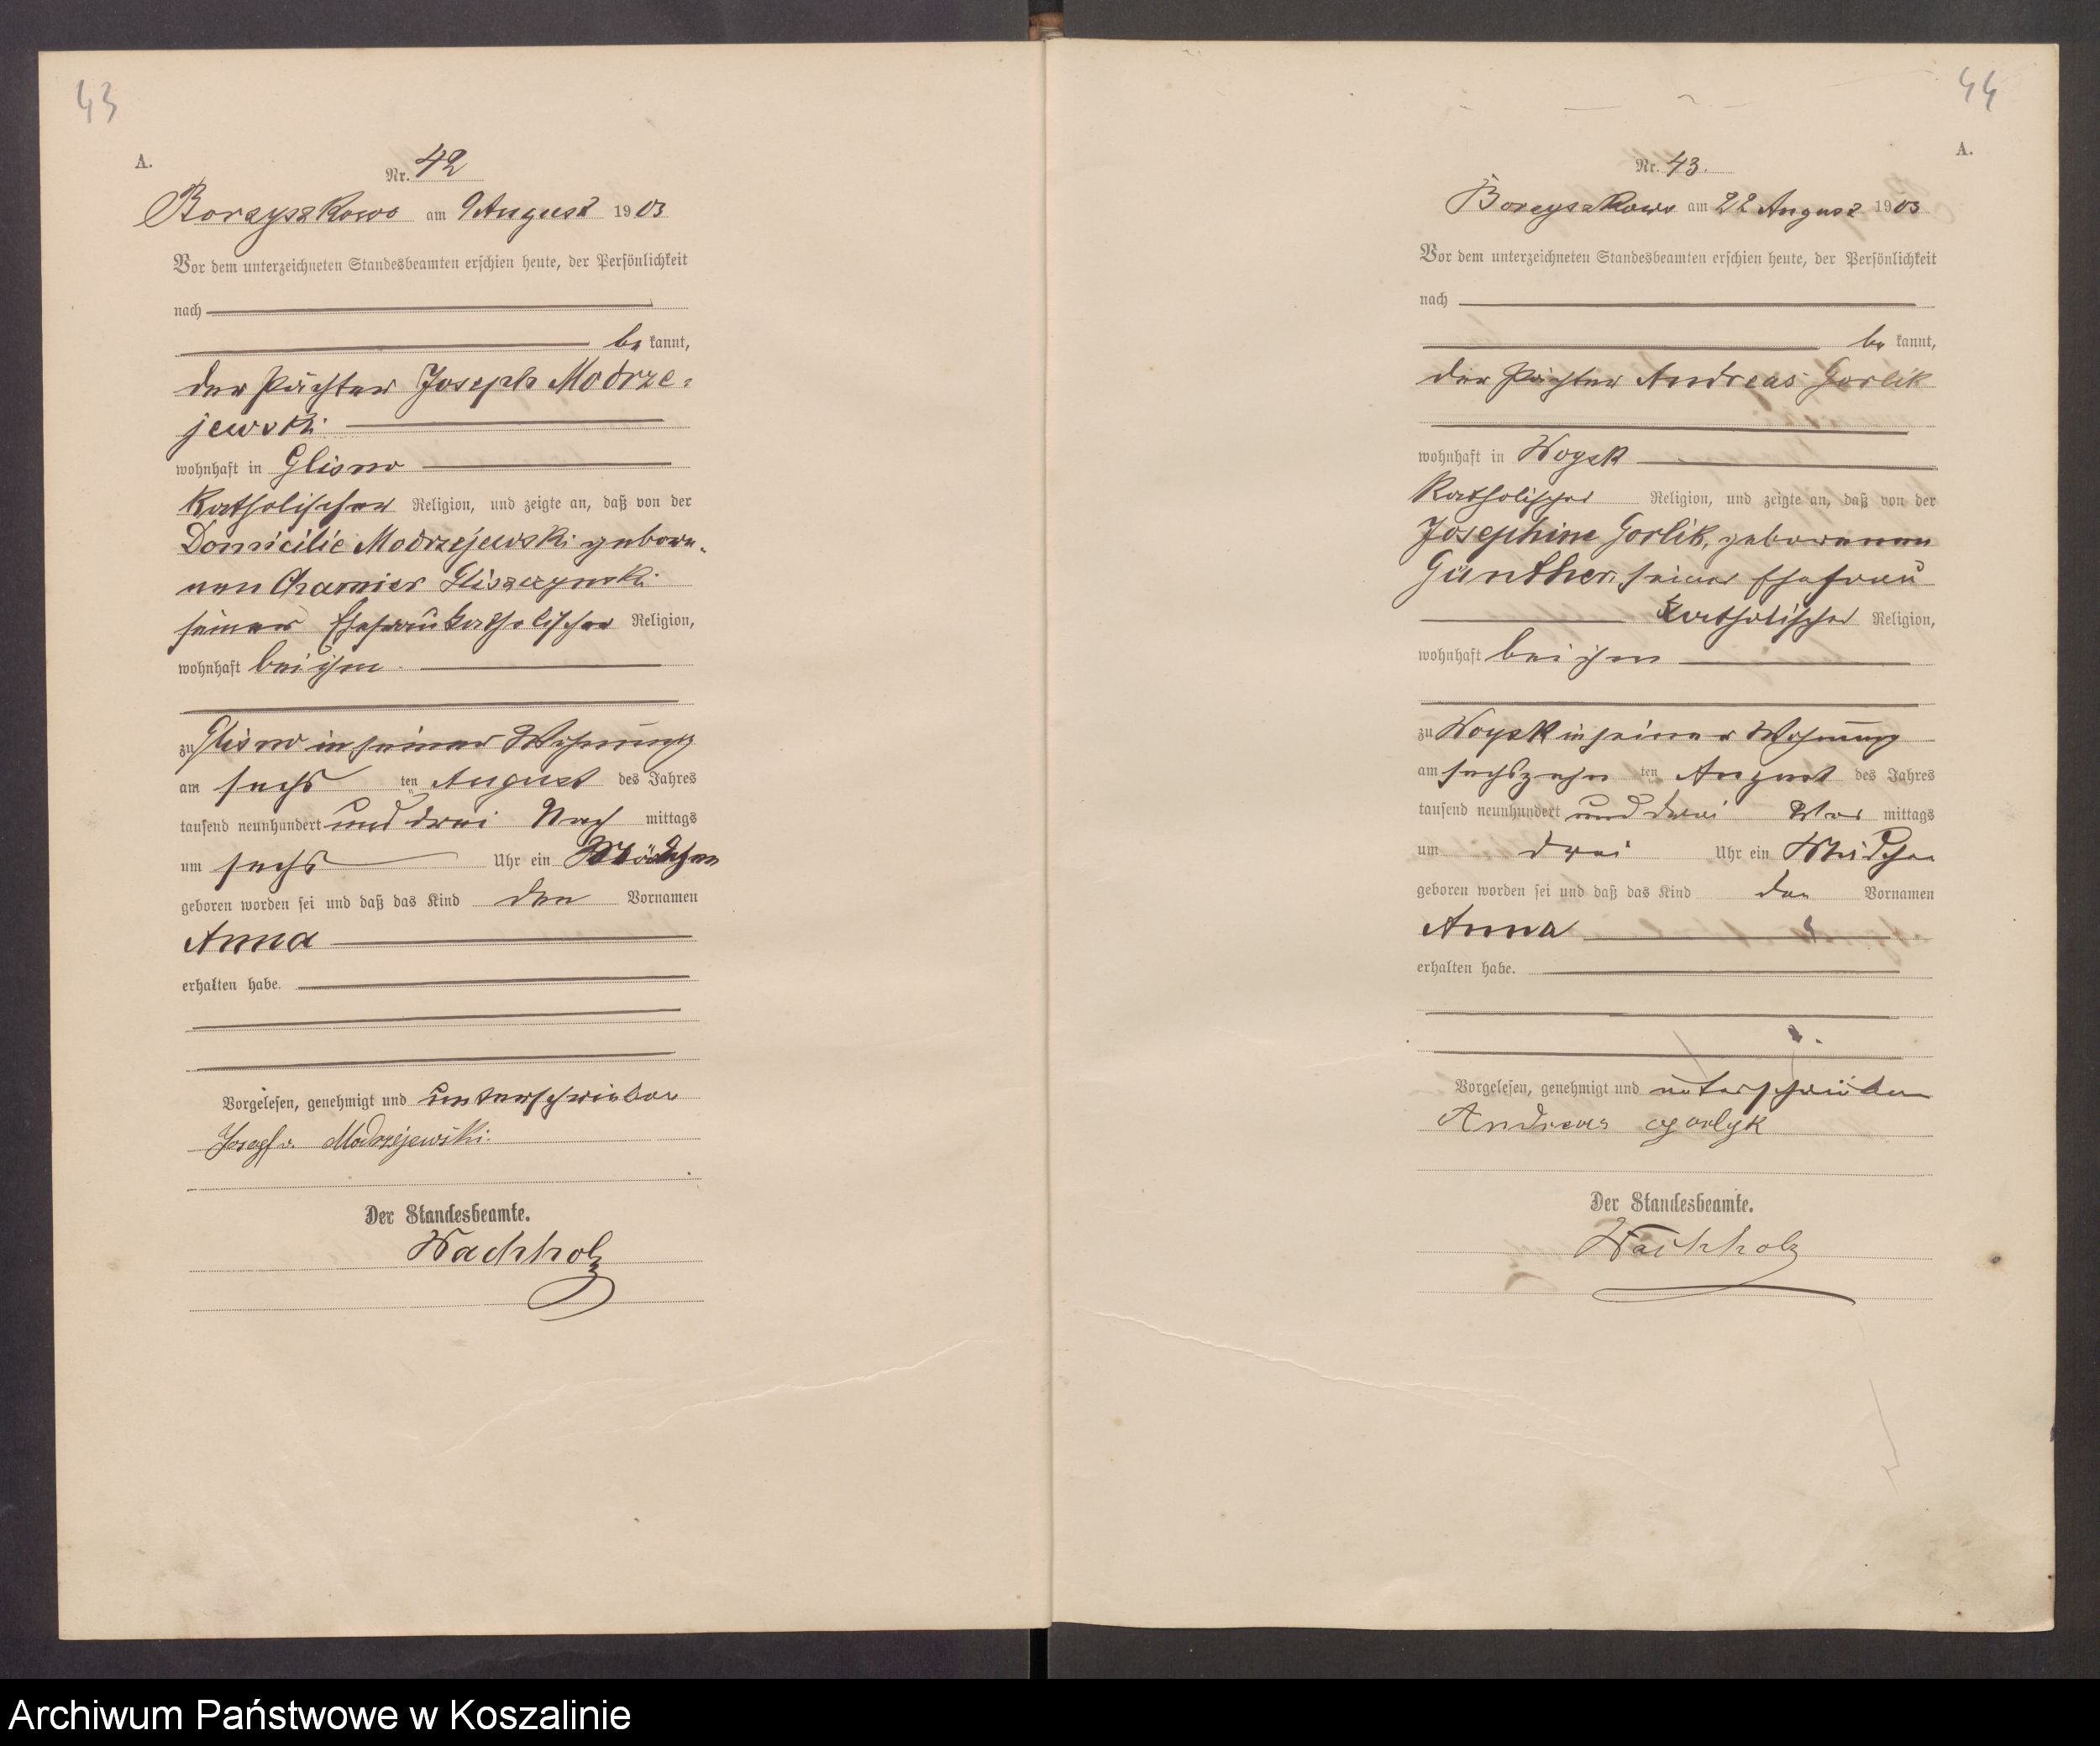 43
A.
Nr. 42
Borzyszkowo am 9 August 1903
Vor dem unterzeichneten Standesbeamten erschien heute, der Persönlichkeit
nach
be kannt,
der Pächter Joseph Modrze-
jewski
wohnhaft in Glisno
katholischer Religion, und zeigte an, daß von der
Domicilie Modrzejewski gebore-
nen Chamier Gliszczynski
seiner Ehefrau katholischer Religion,
wohnhaft bei ihm
zu Glisno in seiner Wohnung
am sechs ten August des Jahres
tausend neunhundert und drei Nach mittags
um sechs Uhr ein Mädchen
geboren worden sei und daß das Kind den Vornamen
Anna
erhalten habe.
Vorgelesen, genehmigt und unterschrieben
Josef v. Modrzejewski.
Der Standesbeamte.
Wachholz
44
A.
Nr. 43.
Borzyszkowo am 22 August 1903
Vor dem unterzeichneten Standesbeamten erschien heute, der Persönlichkeit
nach
be kannt,
der Pächter Andreas Gorlik
wohnhaft in Woysk
katholischer Religion, und zeigte an, daß von der
Josephine Gorlik, geborenen
Günther, seiner Ehefrau
katholischer Religion,
wohnhaft bei ihm
zu Woysk in seiner Wohnung
am sechszehn ten August des Jahres
tausend neunhundert und drei Vor mittags
um drei Uhr ein Mädchen
geboren worden sei und daß das Kind den Vornamen
Anna
erhalten habe.
Vorgelesen, genehmigt und unterschrieben
Andreas Gorlyk
Der Standesbeamte.
Wachholz
Archiwum Państwowe w Koszalinie